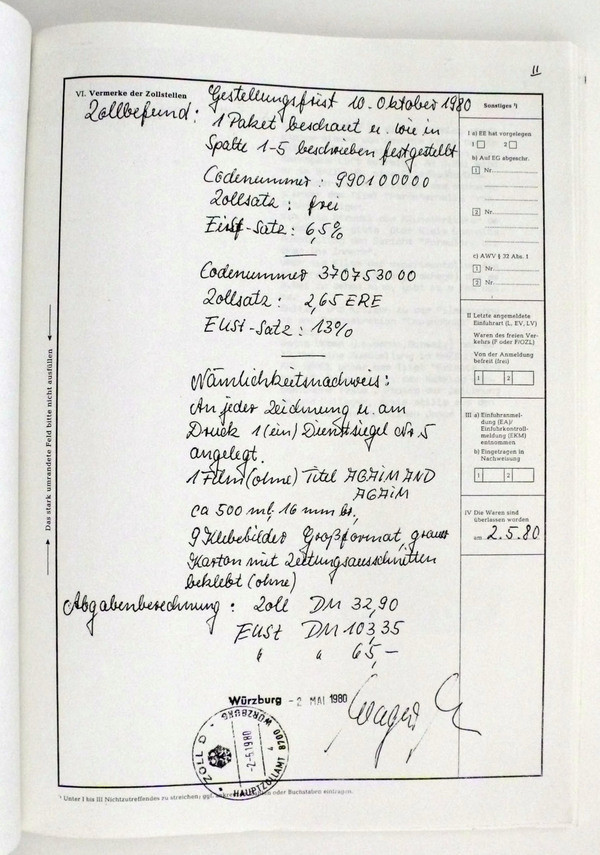 11
VI. Vermerke der Zollstellen
Zollbefund:
Gestellungsfrist 10. Oktober 1980
1 Paket beschaut u. wie in
Spalte 1-5 beschrieben festgestellt
Codenummer: 990100000
Zollsatz: frei
EUSt-Satz: 6,5%
Codenummer 370753000
Zollsatz: 2,65 ERE
EUSt-Satz: 13%
Nämlichkeitsnachweis:
An jeder Zeichnung u. am
Druck 1 (ein) Dienstsiegel Nr. 5
angelegt.
1 Film (ohne) Titel AGAIN AND
AGAIN
ca 500 m, 16 mm
9 Klebebilder Großformat, grauer
Karton mit Zeitungsausschnitten
beklebt (ohne)
Abgabenberechnung: Zoll DM 32,90
EUSt DM 103,35
" " 65,-
Würzburg - 2. MAI 1980
ZOLL D
WÜRZBURG
-2.5.1980
8700
HAUPTZOLLAMT
Das stark umrandete Feld bitte nicht ausfüllen
Sonstiges ¹)
I a) EE hat vorgelegen
1 2
b) Auf EG abgeschr.
1 Nr.
2 Nr.
c) AWV § 32 Abs. 1
1 Nr.
2 Nr.
II Letzte angemeldete
Einfuhrart (L, EV, LV)
Waren des freien Ver-
kehrs (F oder F/OZL)
Von der Anmeldung
befreit (frei)
1 2
III a) Einfuhranmel-
dung (EA)/
Einfuhrkontroll-
meldung (EKM)
entnommen
b) Eingetragen in
Nachweisung
1 2
IV Die Waren sind
überlassen worden
am 2.5.80
¹ Unter I bis III Nichtzutreffendes zu streichen; ggf. oder Buchstaben eintragen.